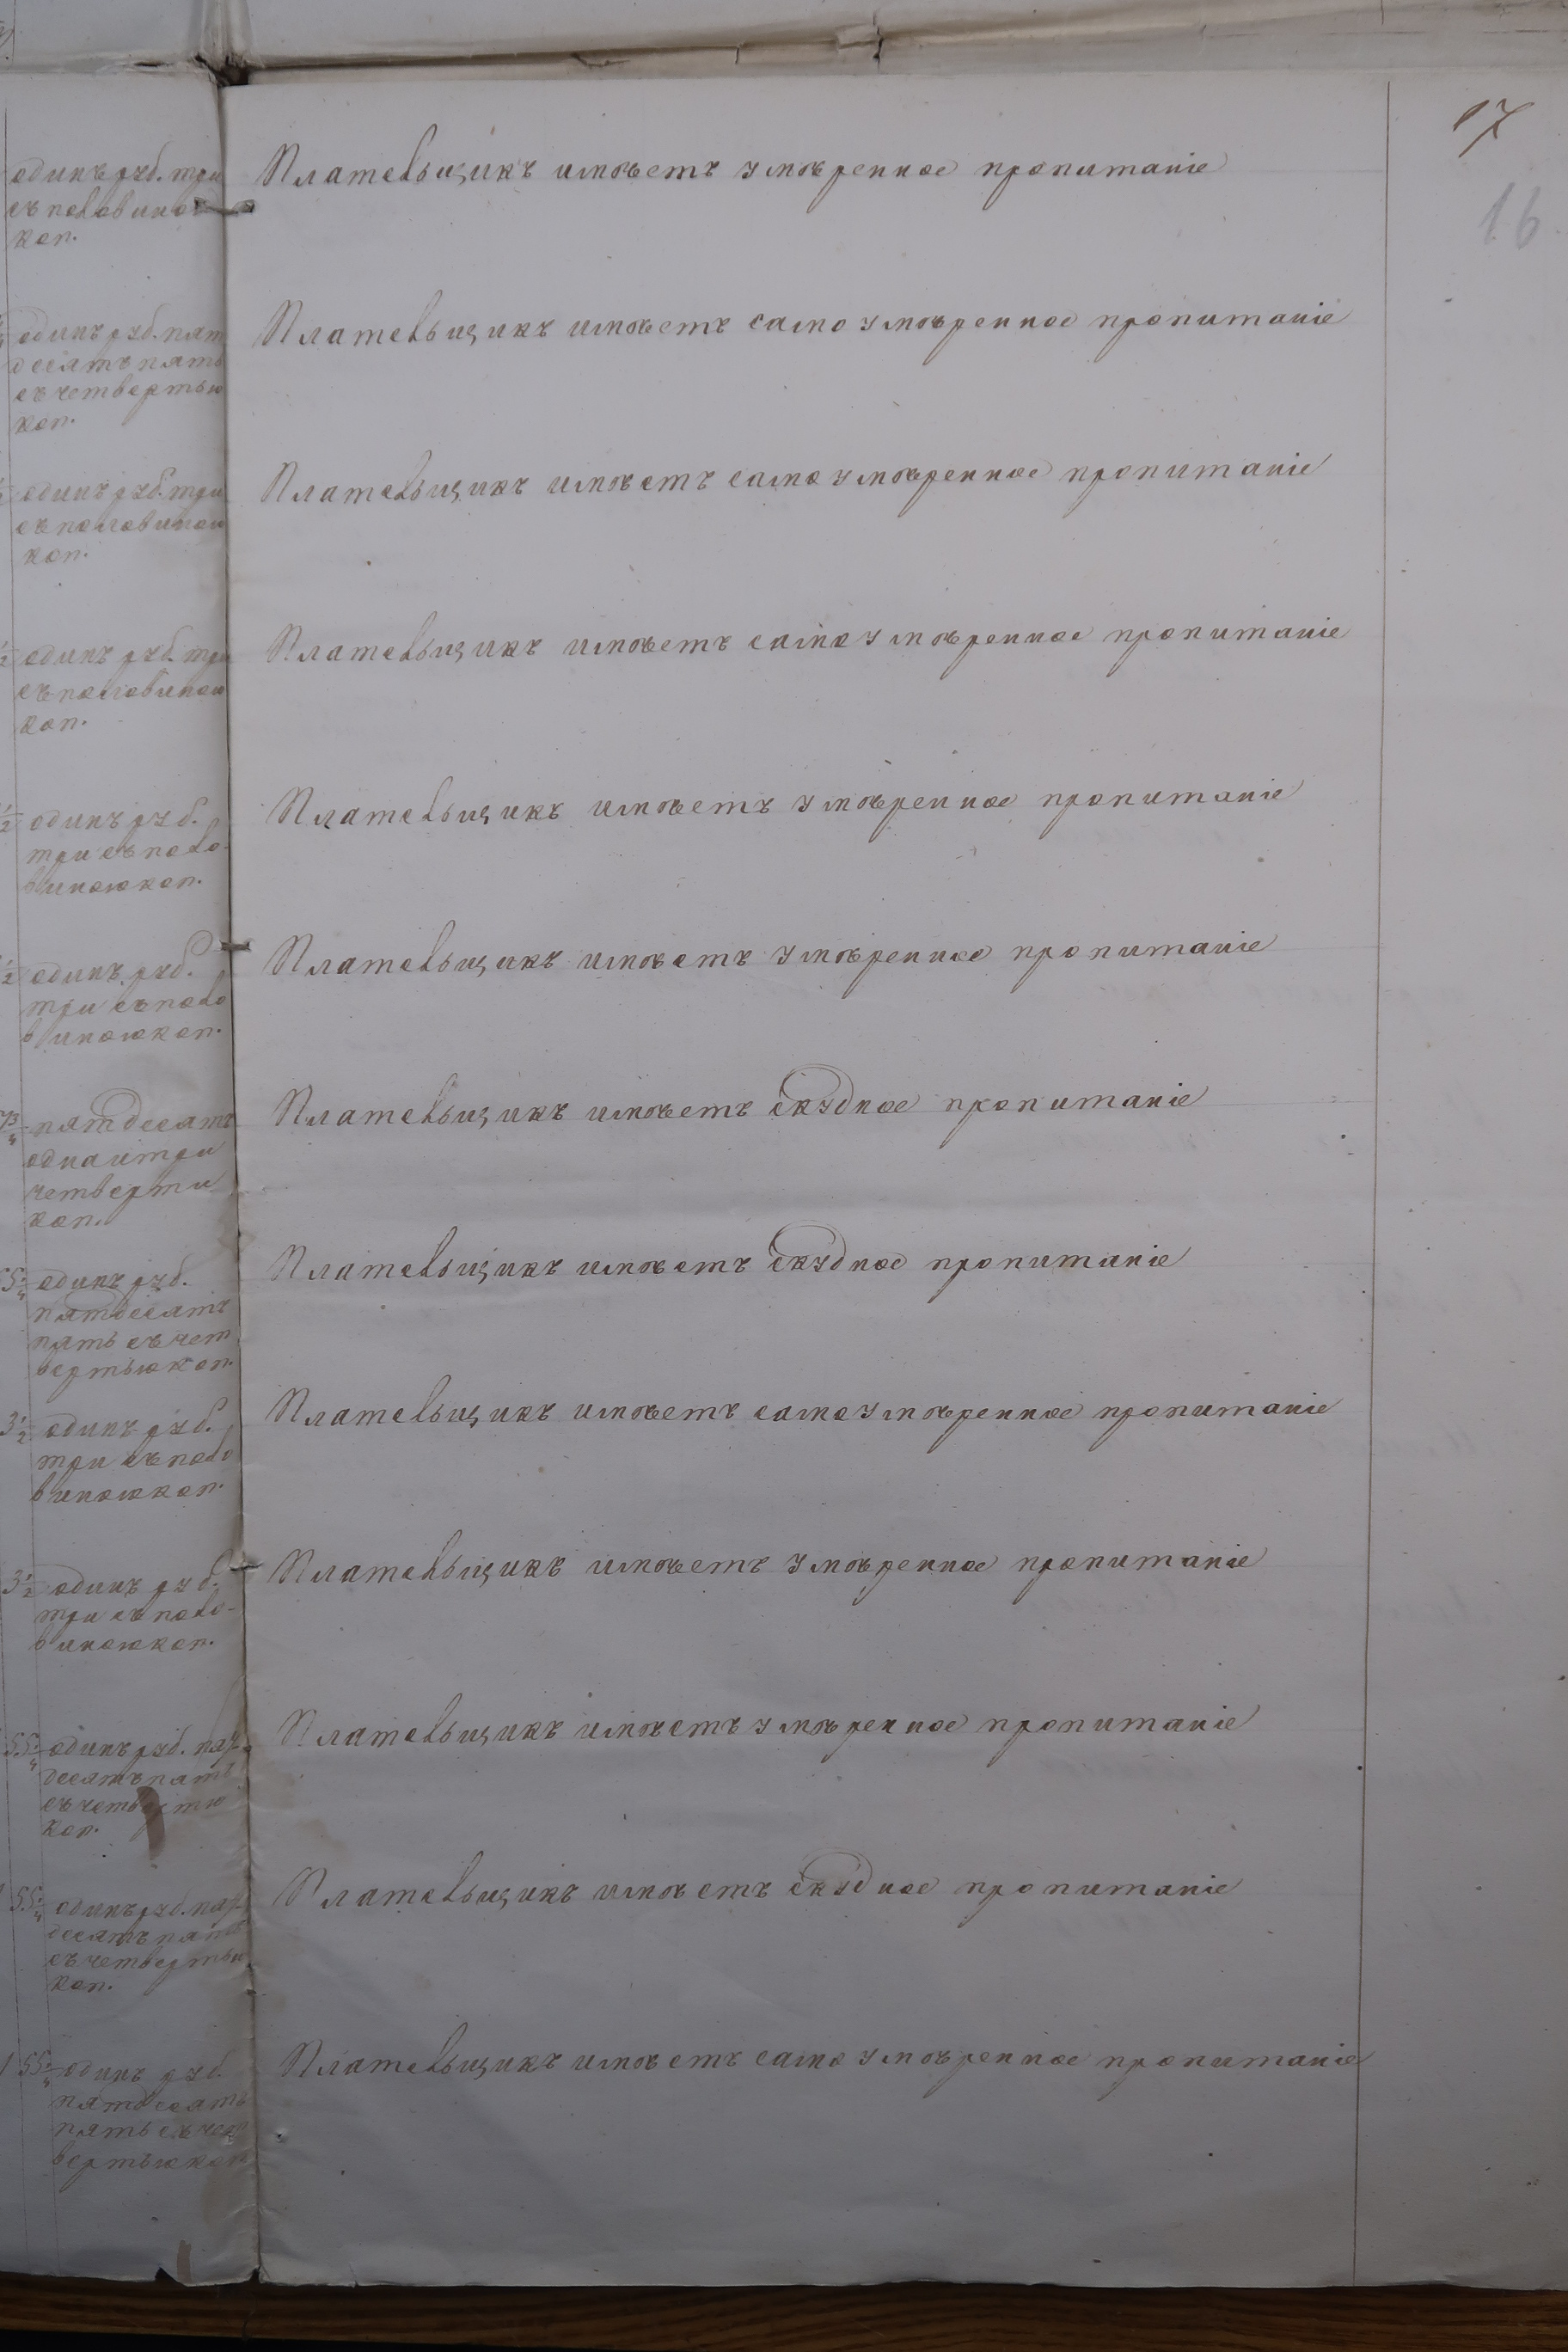 17
16
одинъ руб. три
съ половиною
коп.
Плательщикъ имѣетъ умѣренное пропитаніе
одинъ руб. пят
десятъ пять
съ четвертью
коп.
Плательщикъ имѣетъ само умѣренное пропитаніе
одинъ руб. три
съ половиною
коп.
Плательщикъ имѣетъ само умѣренное пропитаніе
1/2 одинъ руб. три
съ половиною
коп.
Плательщикъ имѣетъ само умѣренное пропитаніе
1/2 одинъ руб.
три съ поло-
виною коп.
Плательщикъ имѣетъ умѣренное пропитаніе
1/2 одинъ руб.
три съ поло
виною коп.
Плательщикъ имѣетъ умѣренное пропитаніе
3/4 пятдесятъ
одна и три
четверти
коп.
Плательщикъ имѣетъ скудное пропитаніе
55 1/4 одинъ руб.
пятдесятъ
пять съ чет
вертью коп.
Плательщикъ имѣетъ скудное пропитаніе
3 1/2 одинъ руб.
три съ поло
виною коп.
Плательщикъ имѣетъ само умѣренное пропитаніе
3 1/2 одинъ руб.
три съ поло-
виною коп.
Плательщикъ имѣетъ умѣренное пропитаніе
55 1/4 одинъ руб. пят-
десятъ пять
съ четвертю
коп.
Плательщикъ имѣетъ умѣренное пропитаніе
55 1/4 одинъ руб. пят-
десятъ пять
съ четвертью
коп.
Плательщикъ имѣетъ скудное пропитаніе
1 55 1/4 одинъ руб.
пятдесятъ
пять съ чет
вертью коп
Плательщикъ имѣетъ само умѣренное пропитаніе